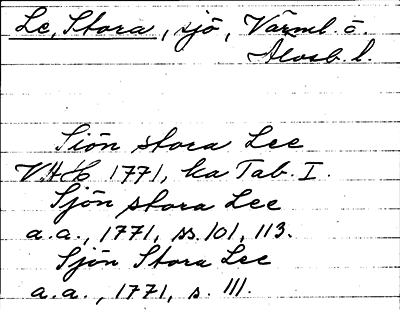 Le, Stora, sjö, Värml. ö.
Älvsb. l.
Siön stora Lee
VAH 1771, ka Tab. I.
Sjön stora Lee
a.a., 1771, ss. 101, 113.
Sjön Stora Lee
a.a., 1771, s. 111.